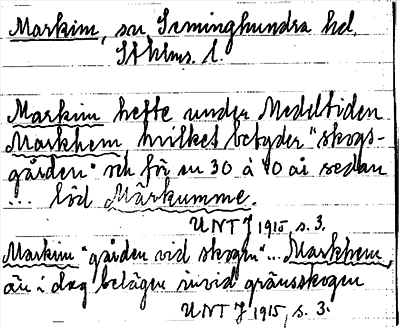 Markim, sn Seminghundra hd,
Sthlms. l.
Markim hette under Medeltiden
Markhem hvilket betyder "skogs-
gården" och för en 30 à 40 år sedan
... löd Märkumme.
UNTJ 1915, s. 3.
Markim "gården vid skogen"... Markhem,
än i dag belägen invid gränsskogen
UNTJ 1915, s. 3.